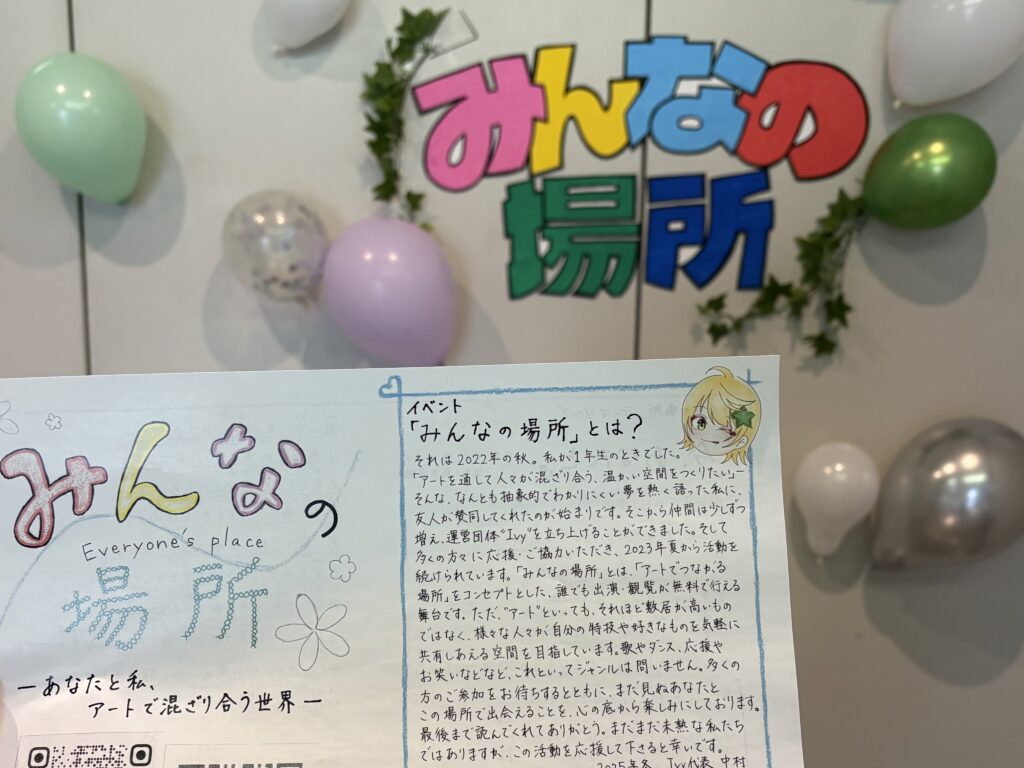 みんなの
場所
みんなの
Everyone's place
場所
ーあなたと私、
アートで混ざり合う世界ー
イベント
「みんなの場所」とは?
それは2022年の秋。私が1年生のときでした。
「アートを通して人々が混ざり合う、温かい空間をつくりたい」ー
そんな、なんとも抽象的でわかりにくい夢を熱く語った私に、
友人が賛同してくれたのが始まりです。そこから仲間は少しずつ
増え、運営団体“Ivy”を立ち上げることができました。そして
多くの方々に応援・ご協力いただき、2023年夏から活動を
続けられています。「みんなの場所」とは、「アートでつながる
場所」をコンセプトとした、誰でも出演・観覧が無料で行える
舞台です。ただ、“アート”といっても、それほど敷居が高いもの
ではなく、様々な人々が自分の特技や好きなものを気軽に
共有しあえる空間を目指しています。歌やダンス、応援や
お笑いなどなど、これといってジャンルは問いません。多くの
方のご参加をお待ちするとともに、まだ見ぬあなたと
この場所で出会えることを、心の底から楽しみにしております。
最後まで読んでくれてありがとう。まだまだ未熟な私たち
ではありますが、この活動を応援して下さると幸いです。
2025年冬 Ivy代表 中村